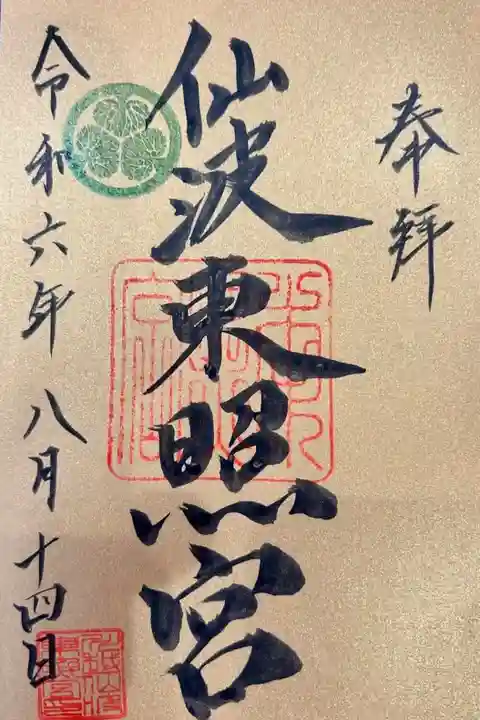 奉拜
仙波東照宮
令和六年八月十四日